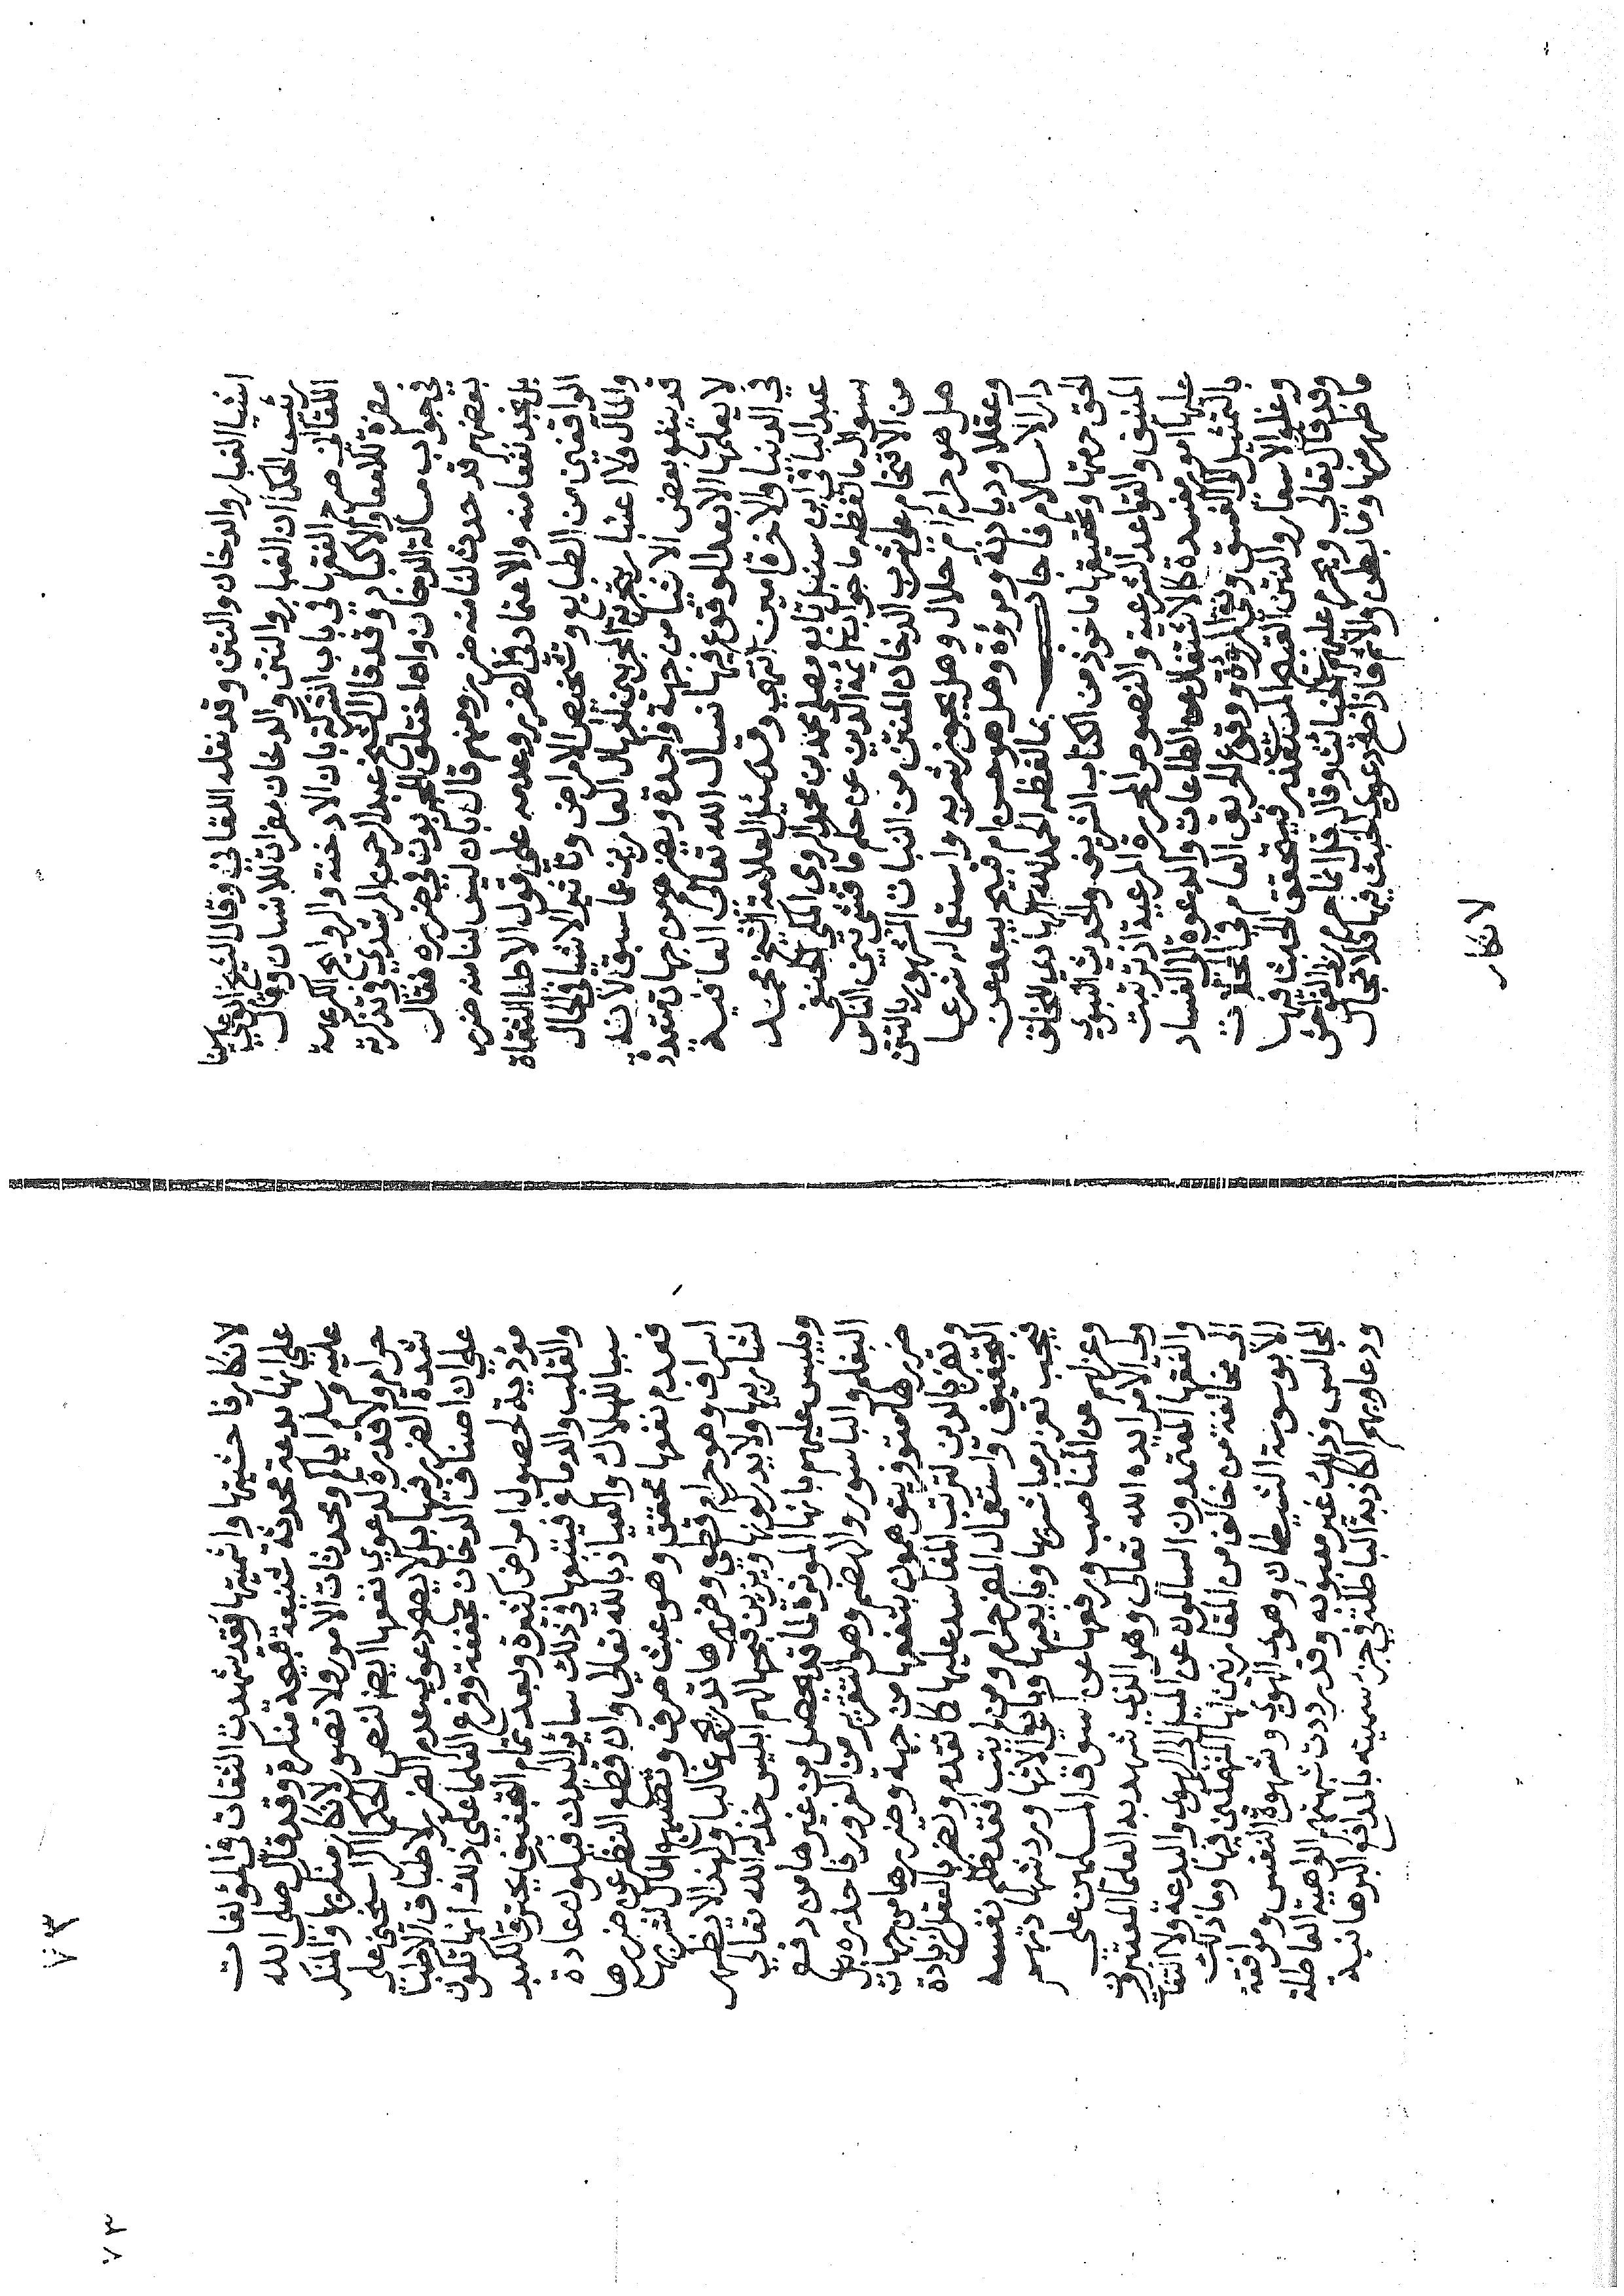 اشيا الغبار والدخان والنتن وقد نقله اللقاني وقال الشيخ ابو علي سينا
رئيس الحكما ان الغبار والنتن والدخان مضرات للانسان وقال
اللقاني صرح الفقها في باب الشركة بان الادخنة والروايح الكريهة
مضرة للامعا والاكباد وقد قال الشيخ عبد الرحمن المرشدي في تذكرته
في جواب مسألة الدخان واما اختلاف المجربون في ضرره فقال
بعضهم قد حدث لنا منه ضرر ومنهم قال بان ليس لنا منه ضرر
بل نجد نفعا منه والاعتماد في الضرر وعدمه على قول الاطبا الثقاة
الواقفين من الطبايع وتشخيص الامراض وتاثير الاشيا في الحال
والمآل ولا اعتبار بتجربة المجربين الجهال العارين عما سبق لانه
قد ينفع بعض الاشيا من جهة واحدة ويضر من جهات متعددة
لا يعلمها الا بعد الوقوع فيها نسال الله تعالى العافية
في الدنيا والاخرة امين انتهى وقد سئل العلامة الشيخ محمد
عبد الباقي ابن سنبل تابع مصلى محمد بن محمد الزوي المكي الحنفي
سوال ما لفظه ما جواب ائمة الدين عن حكم ما فشى بين الناس
من الاقتحام على شرب الدخان المنتن من النبات المشهور بالتتن
هل هو حرام ام حلال وهل يجوز شربه واستعماله شرعا
وعقلا وديانة ومروة وهل هو حسن ام قبيح يبعد عن
دار الاسلام فاجاب بما لفظه الحمد لله الهادي للخلق
الحق حرمتها وتحقيقها ماخوذ من الكتاب الشريف والحديث النبوي
المنيف والقواعد الشرعية والنصوص المحررة المرعية اذ ترتبت
عليها امور مفسدة كالاشتغال عن الطاعات والدعوة الى الفساد
بالتمثيل الى الفسق ونقي المروة ووقوع الحريق العام في المحلات
وغلو الاسعار والنتن القبيح المستقذر فيتحقق الخبث فيها
وقد قال تعالى ويحرم عليهم الخبائث وقال قل انما حرم ربي الفواحش
ما ظهر منها وما بطن والاثم فاذا اتضح دعوى الخبث فيها فلا مجال
لانكار
لانكار فاحشيتها واثميتها فقد شهدت الثقات في المؤلفات
على انها بدعة محدثة شنيعة قبيحة منكرة وقد قال صلى الله
عليه وسلم اياكم ومحدثات الامور ولا تصور لانكار منكريها والمنكر
حرام ولا قدرة لدعوى نفعها ايضا لنص الحكما الراسخين على
شدة الضرر فيها بل لا يصح دعوى عدم الضرر لاطباق الاطبا
على ان اصناف الدخان مجففة وفرع العلما على ذلك انها تكون
مؤدية لحصول امراض كثيرة وبعد تمام التجفيف يحترق الكبد
والقلب والدماغ فيتبعها في ذلك سائر البدن فيكون عادة
سببا للهلاك والعياذ بالله تعالى وان قطع النظر عن ضررها
فعدم نفعها محقق وهو عبث صرف وتضييع المال لشربها
اسراف وهو حرام قطعي وضررها تدريجي غالبا ولهذا لا يظهر
لشاربها ولا يدركونها ويزين قبحها لهم ابليس خذله الله تعالى
ويلبس عليهم بانها الموثرة لما قد يحصل من غيرها من دفع
البلغم والباسور والهضم وهو التغرير من الغرور فاحذره بل
ضررها متوفر يتوهمون بنفعها من جهة وضررها من جهات
وتضر بالدين لترتب المفاسد عليها كما تقدم وتضر بالعقل لزيادة
التجفيف واستعمال المضر حرام ومن ايت افقد ظلم نفسه
فيجب تعزير مباشريها وبايعيها وبايع الاتها ورد شهادتهم
وعزلهم عن المناصب ورفعها عن اسواق المسلمين على
ولي الامر ايده الله تعالى وهو الذي شهد به العلما المعتبرون
والفقها المعتمدون السالمون عن الميل الى الهوى والبدعة ولا التفات
الى مخالفة من خالف من المقارنين بها المنهمكين فيها وما ذلك
الا بوسوسة الشيطان وهوى الهوى وشهوة النفس وموافقة
المجالس وذلك غير مصونه وقد رددت شبهتهم الواهية الفاطلة
ودعاويهم الكاذبة الباطلة في جز سميته بالمدافع البرهانية
٧٣
٧٣